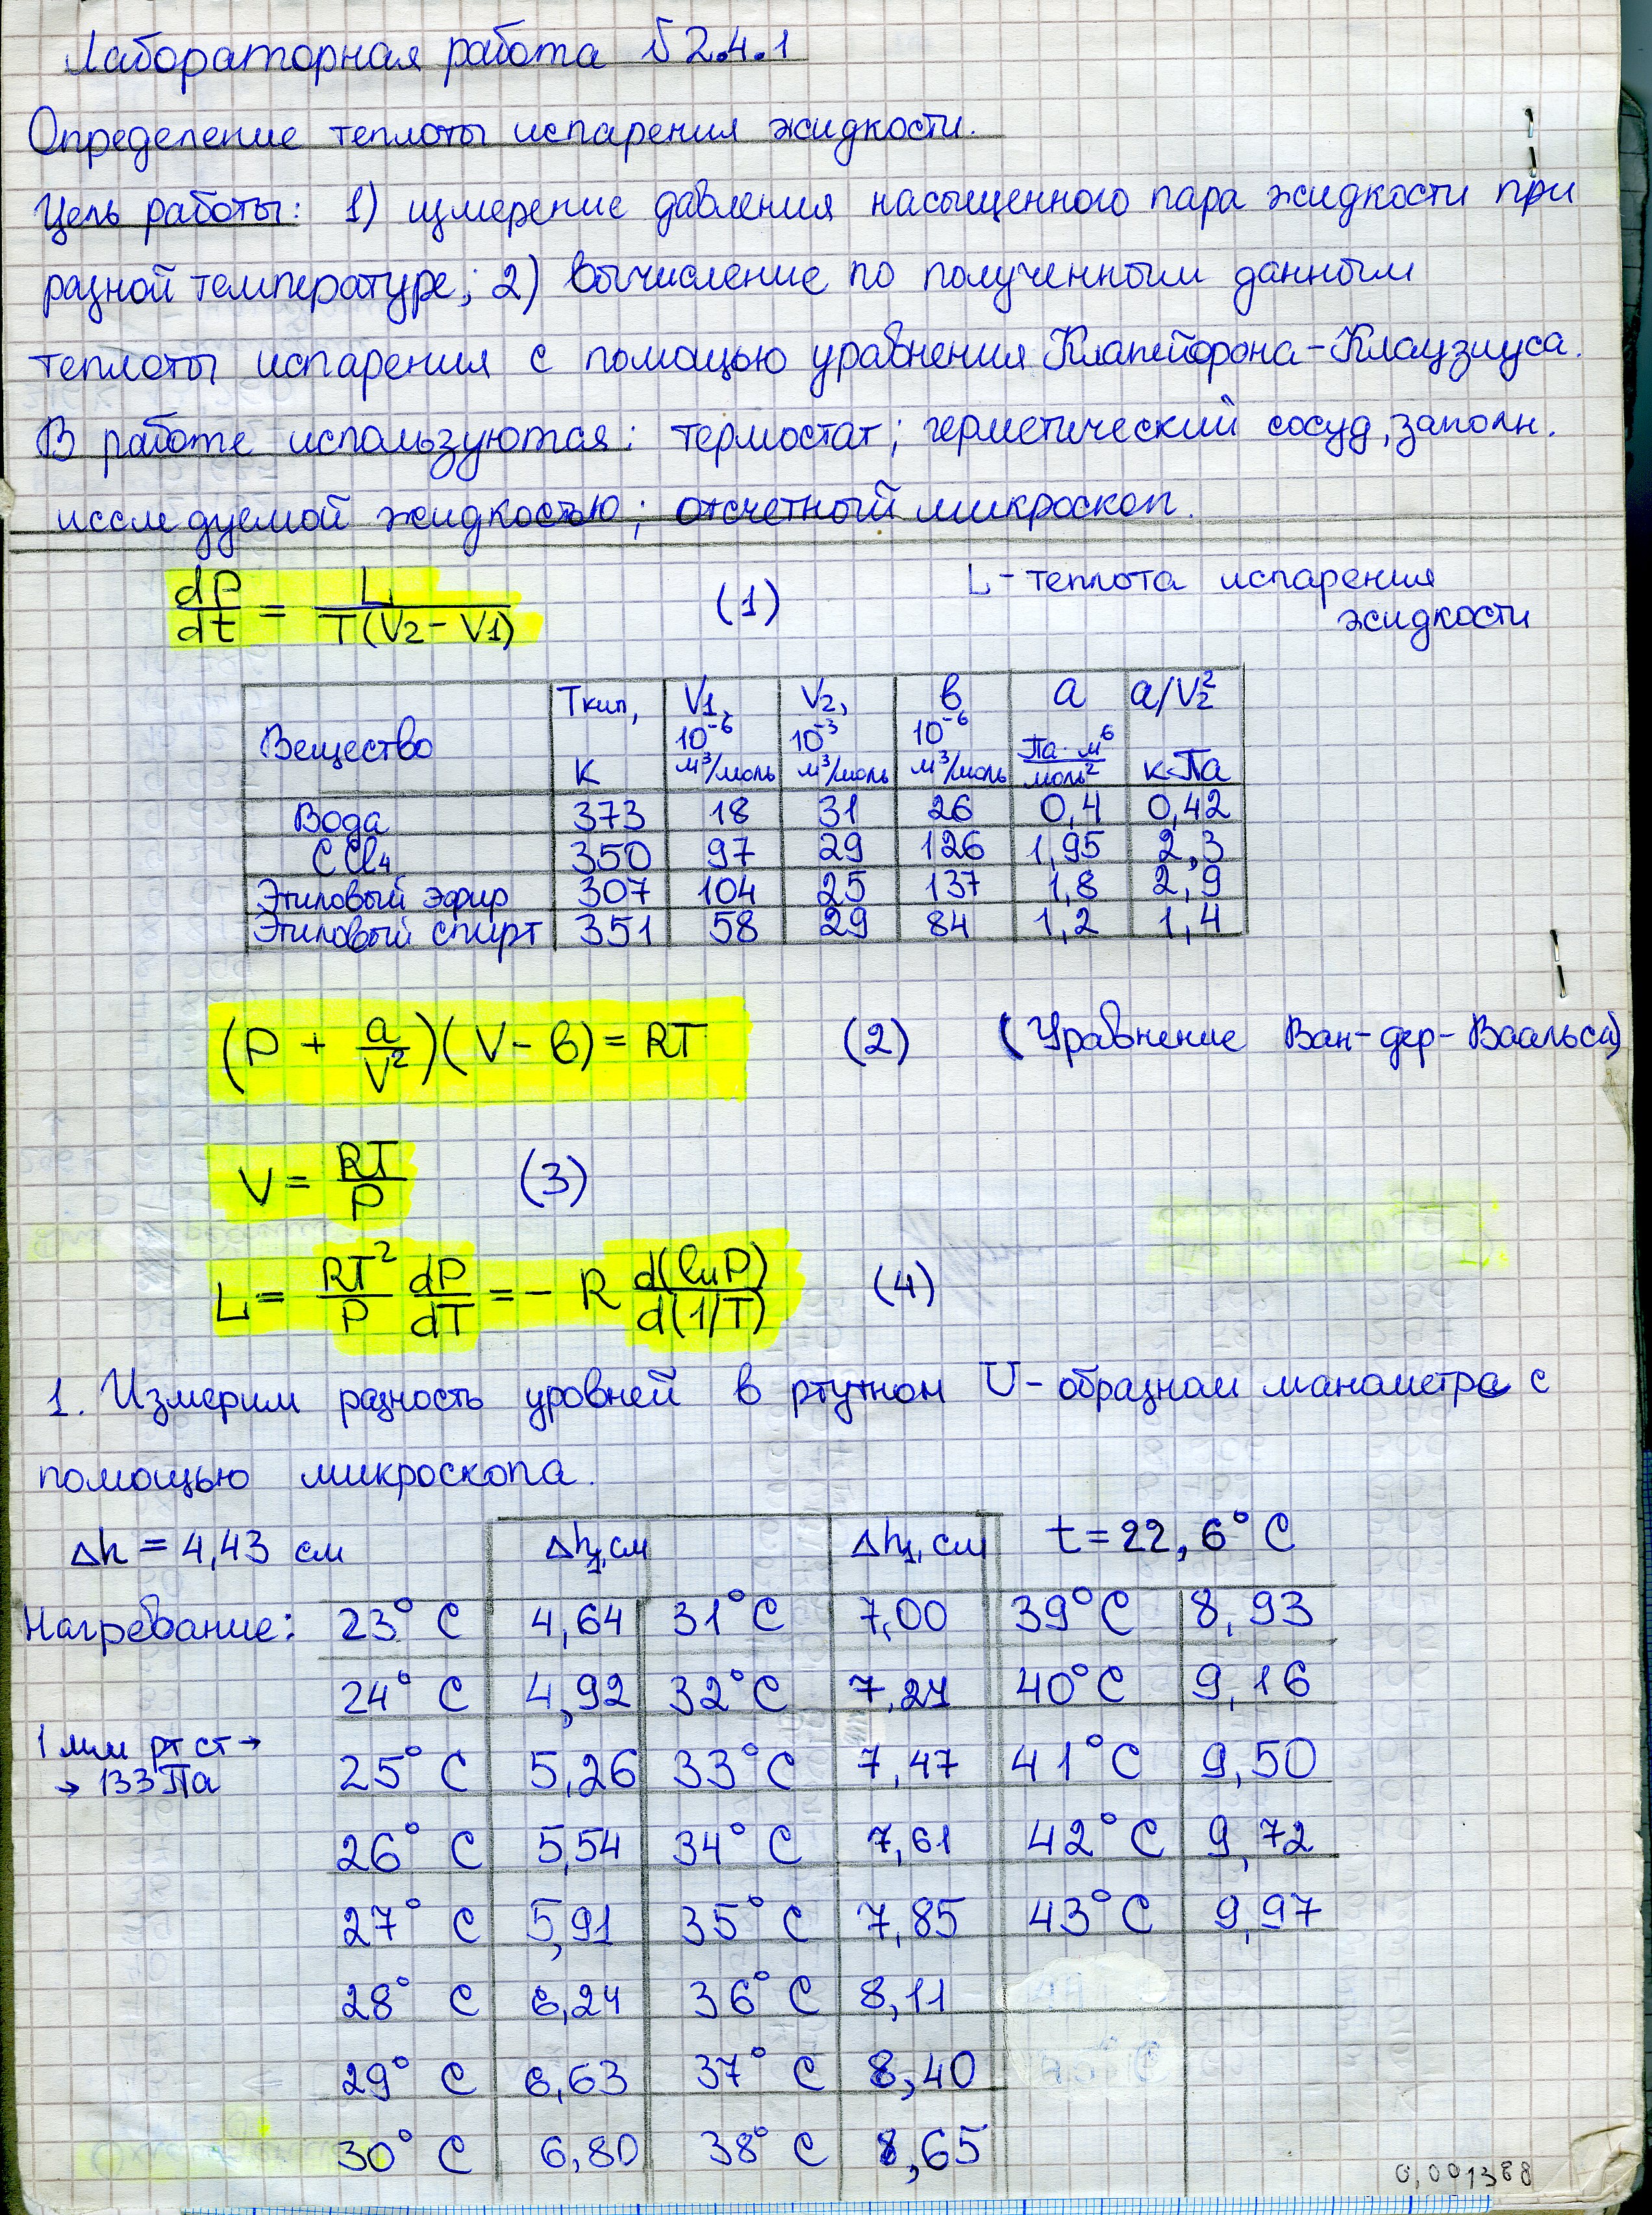 Лабораторная работа №2.4.1
Определение теплоты испарения жидкости.
Цель работы: 1) измерение давления насыщенного пара жидкости при
разной температуре; 2) вычисление по полученным данным
теплоты испарения с помощью уравнения Клапейрона-Клаузиуса.
В работе используются: термостат; герметический сосуд, заполн.
исследуемой жидкостью; отсчетный микроскоп.
dP/dt = L/T(V2 - V1) (1) L - теплота испарения
жидкости
Вещество Tкип, К V1, 10⁻⁶ м³/моль V2, 10⁻³ м³/моль в 10⁻⁶ м³/моль a Па·м⁶/моль² a/V2² кПа
Вода 373 18 31 26 0,4 0,42
CCl4 350 97 29 126 1,95 2,3
Этиловый эфир 307 104 25 137 1,8 2,9
Этиловый спирт 351 58 29 84 1,2 1,4
(P + a/V²)(V - в) = RT (2) (Уравнение Ван-дер-Ваальса)
V = RT/P (3)
L = RT²/P dP/dT = - R d(lnP)/d(1/T) (4)
1. Измерим разность уровней в ртутном U-образном манометре с
помощью микроскопа.
Δh = 4,43 см Δh1, см Δh1, см t = 22,6° C
Нагревание: 23° C 4,64 31° C 7,00 39° C 8,93
24° C 4,92 32° C 7,27 40° C 9,16
1 мм рт ст →
→ 133 Па
25° C 5,26 33° C 7,47 41° C 9,50
26° C 5,54 34° C 7,61 42° C 9,72
27° C 5,91 35° C 7,85 43° C 9,97
28° C 6,24 36° C 8,11
29° C 6,63 37° C 8,40
30° C 6,80 38° C 8,65
0,001388